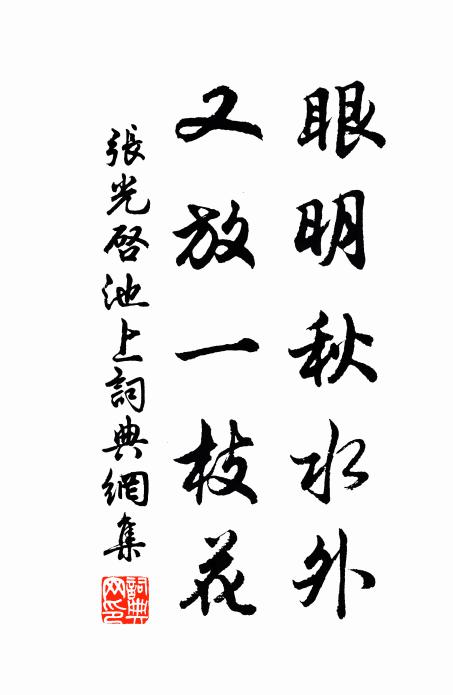 眼明秋水外
又放一枝花
張光启池上詞典網集
詞典网印